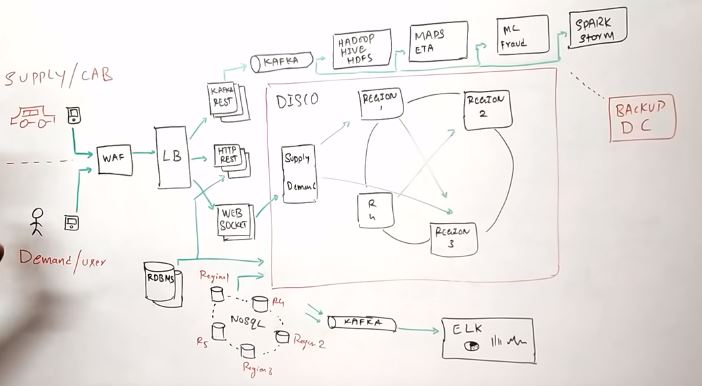 SUPPLY/CAB
Demand/user
WAF
LB
KAFKA
REST
HTTP
REST
WEB
SOCKET
KAFKA
HADOOP
HIVE
HDFS
MAPS
ETA
ML
Fraud
SPARK
Storm
BACKUP
DC
DISCO
Supply
Demand
REGION
1
REGION
2
R
4
REGION
3
RDBMS
NoSQL
Region1
R4
R5
Region 2
Region3
KAFKA
ELK